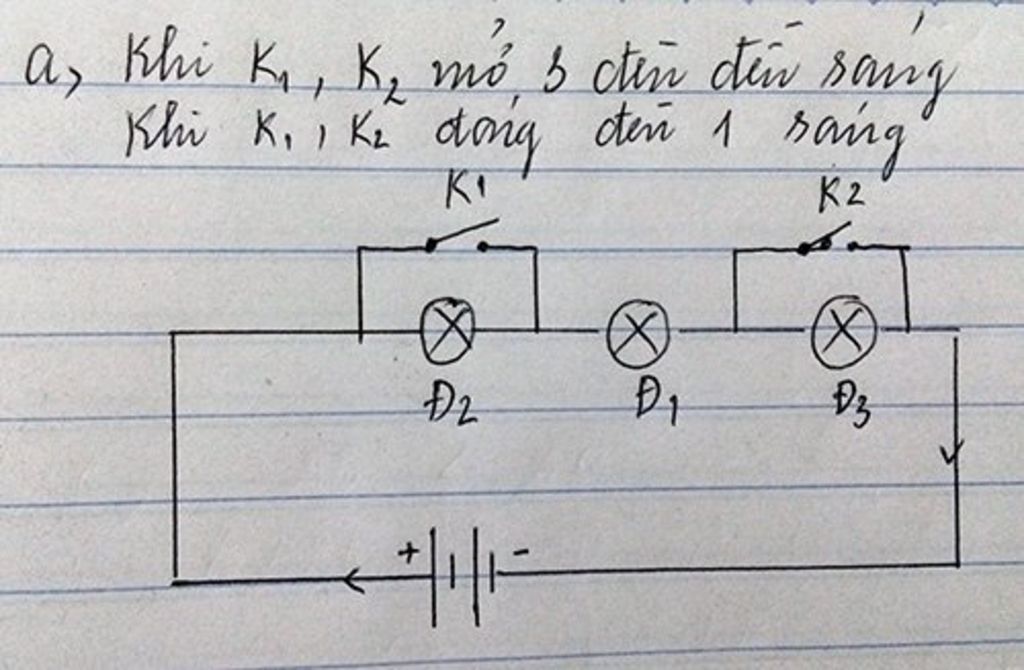 a, Khi K1, K2 mở, 3 đèn đều sáng
Khi K1, K2 đóng đèn 1 sáng
K1 K2
Đ2 Đ1 Đ3
+ -